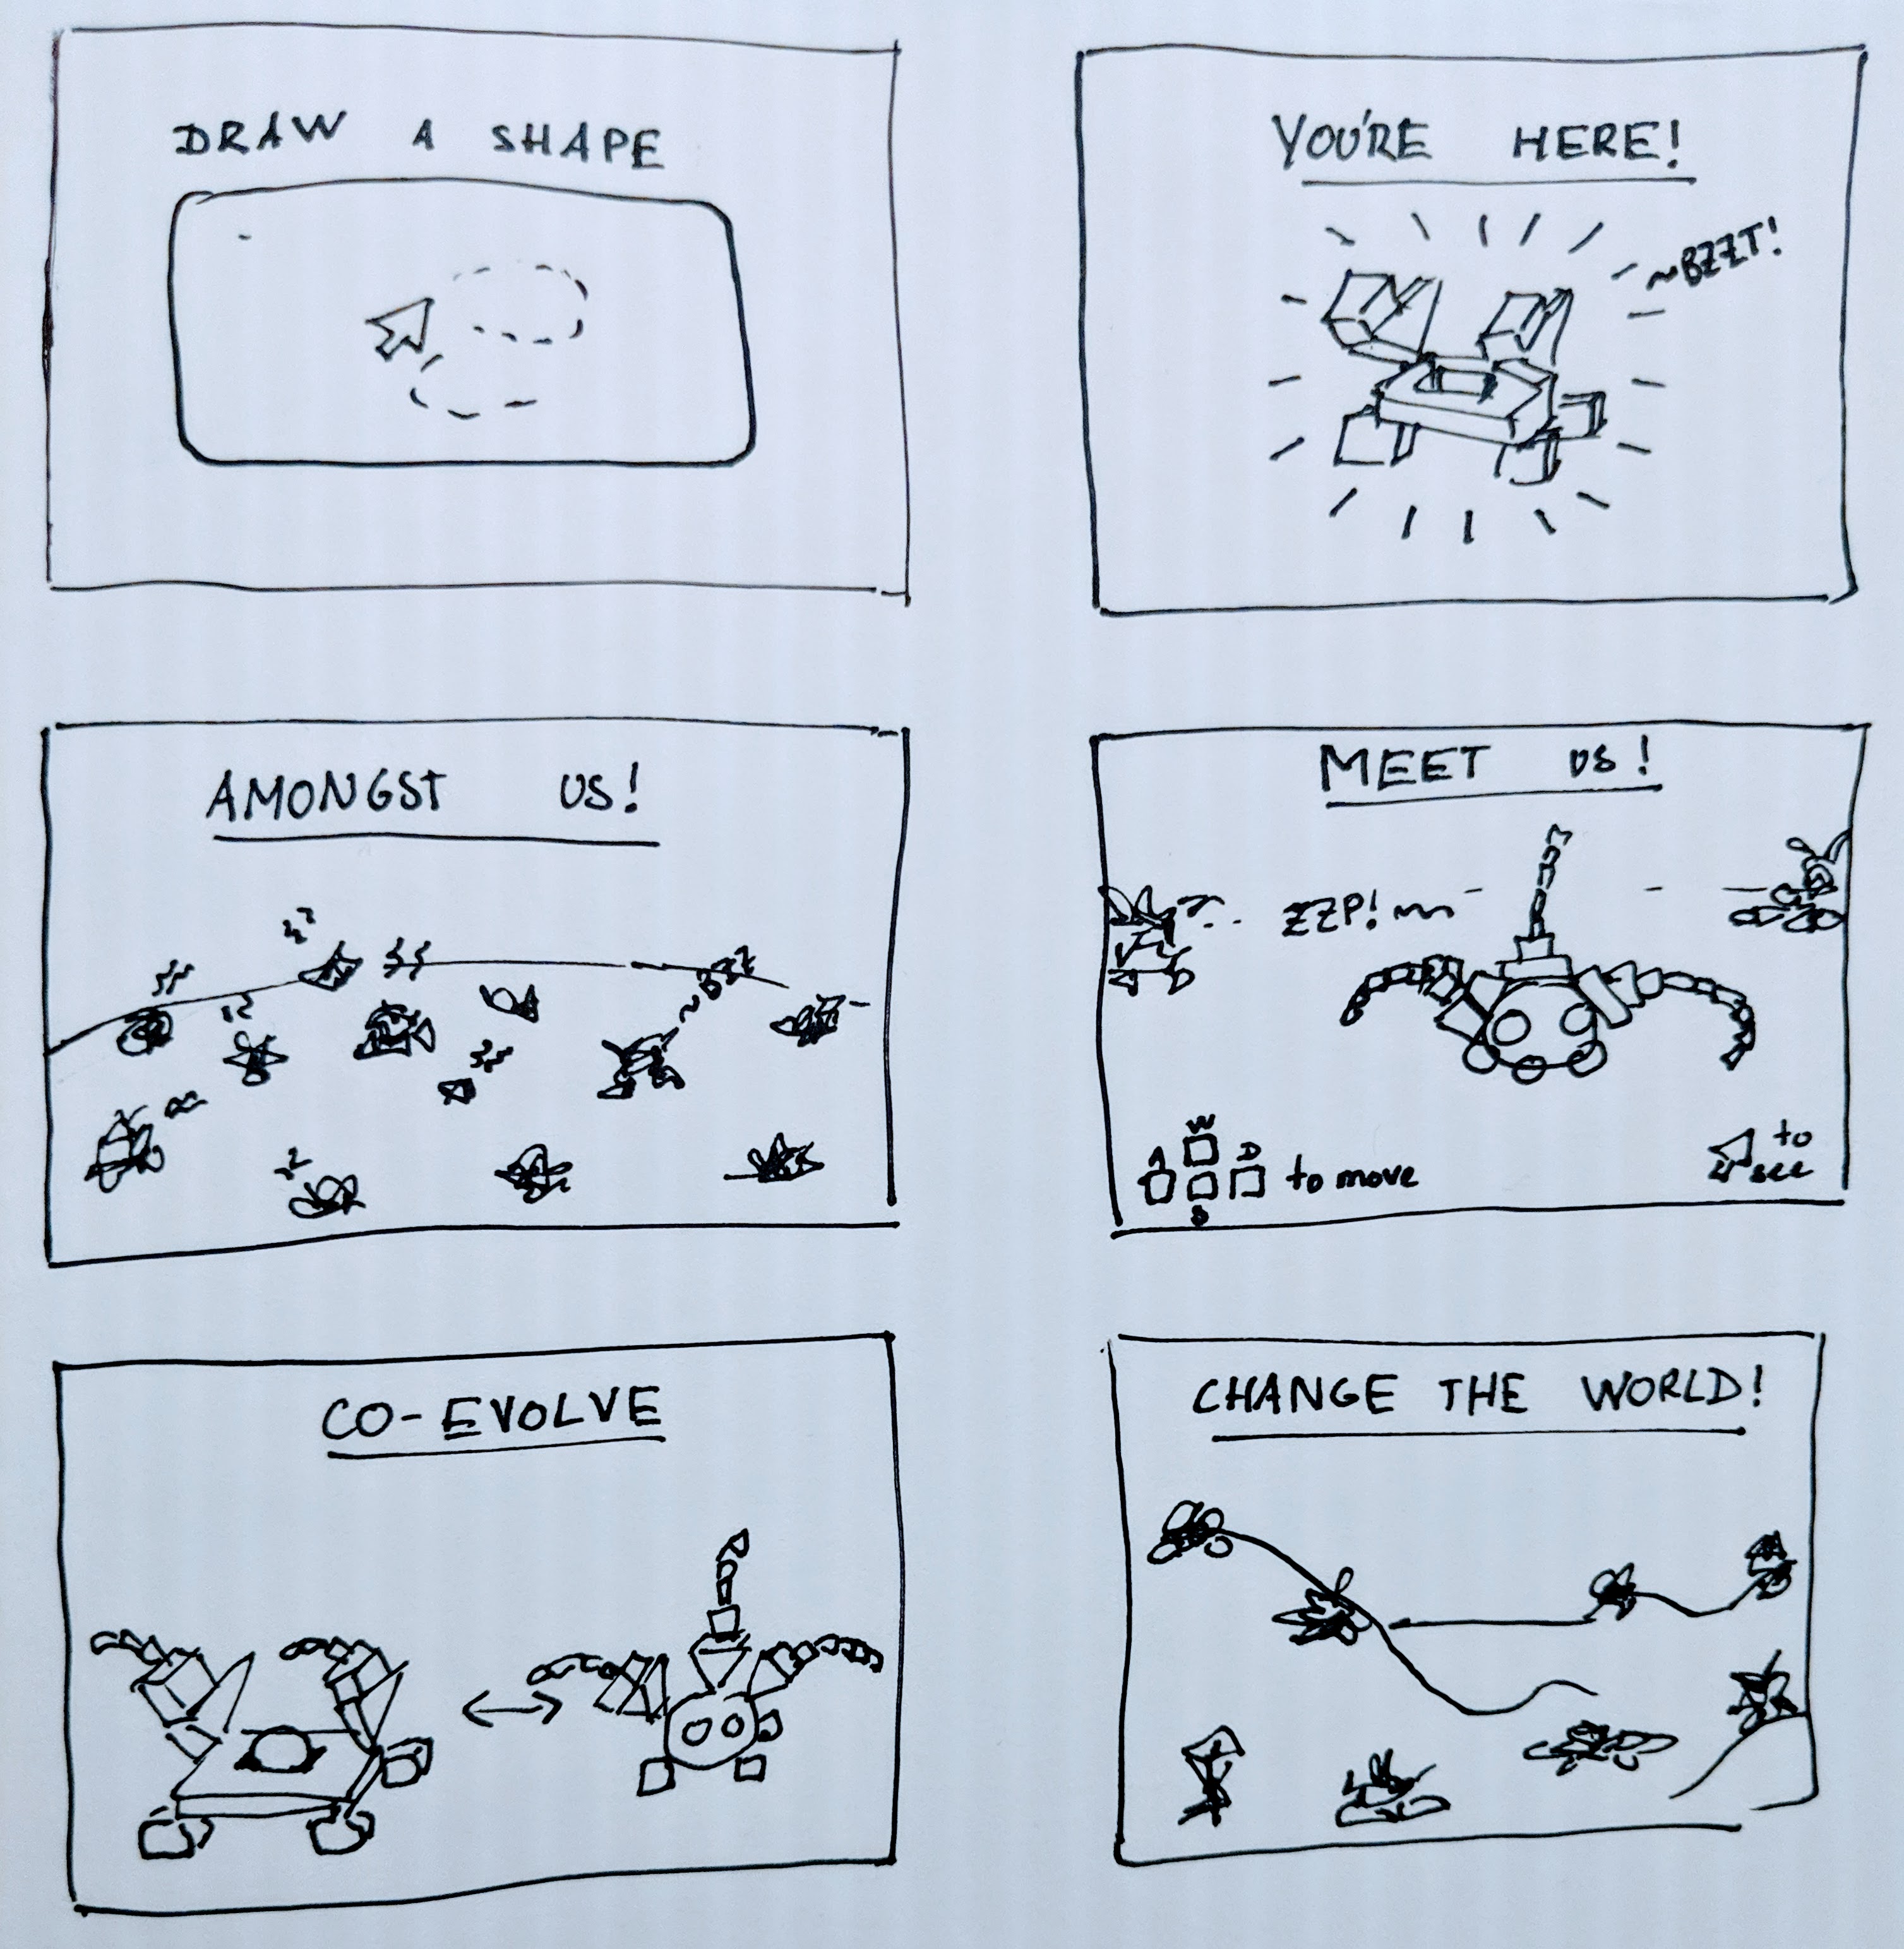 DRAW A SHAPE
YOU'RE HERE!
~BZZT!
AMONGST US!
~BZZ
MEET US!
ZZP!
W
A
D
S
to move
to
see
CO-EVOLVE
CHANGE THE WORLD!